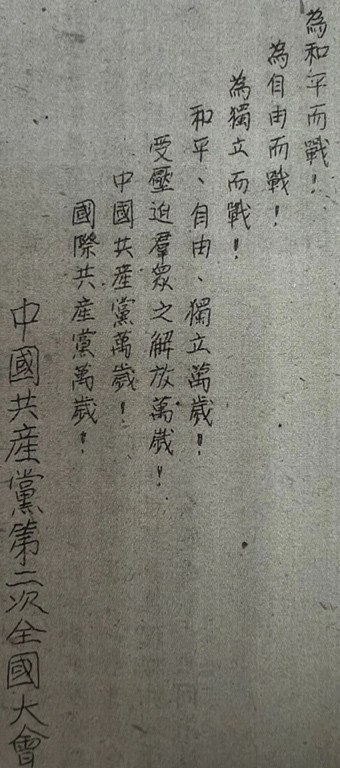 為和平而戰！
為自由而戰！
為獨立而戰！
和平、自由、獨立萬歲！
受壓迫羣眾之解放萬歲！
中國共産黨萬歲！
國際共産黨萬歲！
中國共産黨第二次全國大會